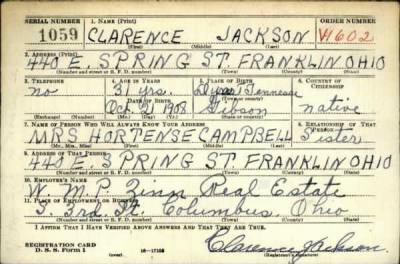 SERIAL NUMBER 1. NAME (Print) ORDER NUMBER
1059 CLARENCE JACKSON V1602
(First) (Middle) (Last)
2. ADDRESS (Print)
440 E. SPRING ST. FRANKLIN OHIO
(Number and street or R. F. D. number) (Town) (County) (State)
3. TELEPHONE 4. AGE IN YEARS 5. PLACE OF BIRTH 6. COUNTRY OF CITIZENSHIP
no 31 yrs. Dyer, Tennesse
DATE OF BIRTH (Town or county)
Oct. 21 1908 Gibson native
(Exchange) (Number) (Mo.) (Day) (Yr.) (State or country)
7. NAME OF PERSON WHO WILL ALWAYS KNOW YOUR ADDRESS 8. RELATIONSHIP OF THAT PERSON
MRS HORTENSE CAMPBELL Sister
(Mr., Mrs., Miss) (First) (Middle) (Last)
9. ADDRESS OF THAT PERSON
440 E. SPRING ST. FRANKLIN OHIO
(Number and street or R. F. D. number) (Town) (County) (State)
10. EMPLOYER'S NAME
W. M. P. Zinn Real Estate
11. PLACE OF EMPLOYMENT OR BUSINESS
S. 3rd. St. Columbus, Ohio
(Number and street or R. F. D. number) (Town) (County) (State)
I AFFIRM THAT I HAVE VERIFIED ABOVE ANSWERS AND THAT THEY ARE TRUE.
REGISTRATION CARD
D. S. S. Form 1 16—17105 Clarence Jackson
(Registrant's signature)